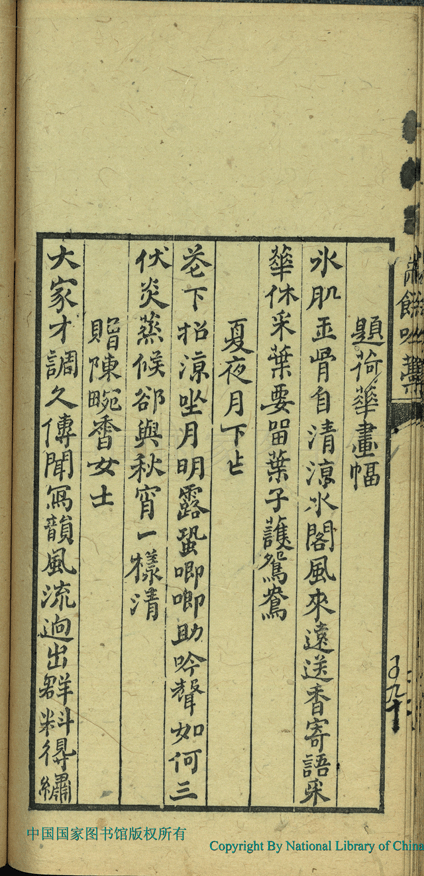 題荷華畫幅
氷肌玉骨自清涼水閣風來遠送香寄語采
華休采葉要留葉子護鴛鴦
夏夜月下作
花下招涼坐月明露蛩唧唧助吟聲如何三
伏炎蒸候卻與秋宵一樣清
貽陳畹香女士
大家才調久傳聞寫韻風流迥出群料得繡
餘吟
中国国家图书馆版权所有
Copyright By National Library of China